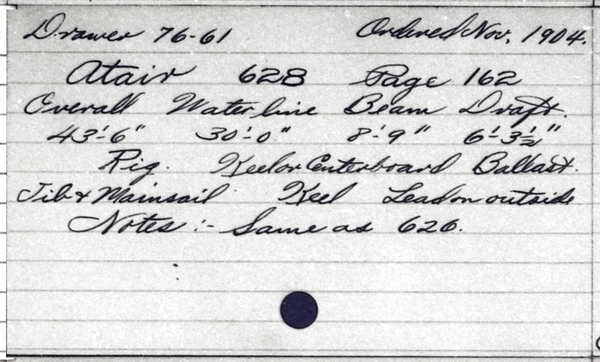 Drawer 76-61 Ordered Nov. 1904.
Atair 628 Page 162
Overall Water-line Beam Draft.
43'-6" 30'-0" 8'-9" 6'-3½"
Rig. Keel or Centerboard Ballast.
Jib & Mainsail Keel Lead on outside
Notes :- Same as 626.